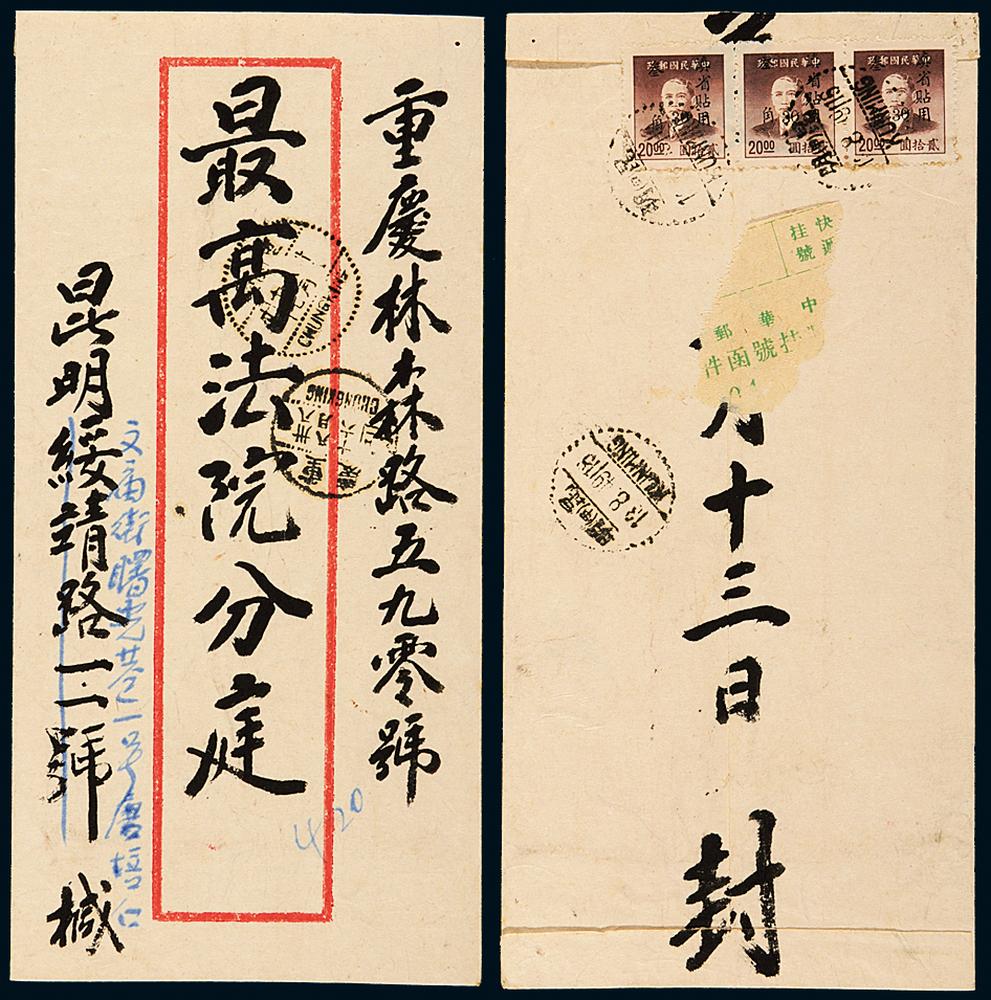 重慶林森路五九零號
最高法院分庭
昆明綏靖路一一二號 椷
文廟街
巷二一号
420
CHUNGKING
CHUNGKING
重慶
卅八年
八月十六
中華民國郵政
省貼用
角 30
20.00 貳拾圓
中華民國郵政
省貼用
角 30
20.00 貳拾圓
中華民國郵政
省貼用
角 30
20.00 貳拾圓
KUNMING
快遞
挂號
中華郵
挂號函件
月十三日
封
KUNMING
13 8 49
昆明